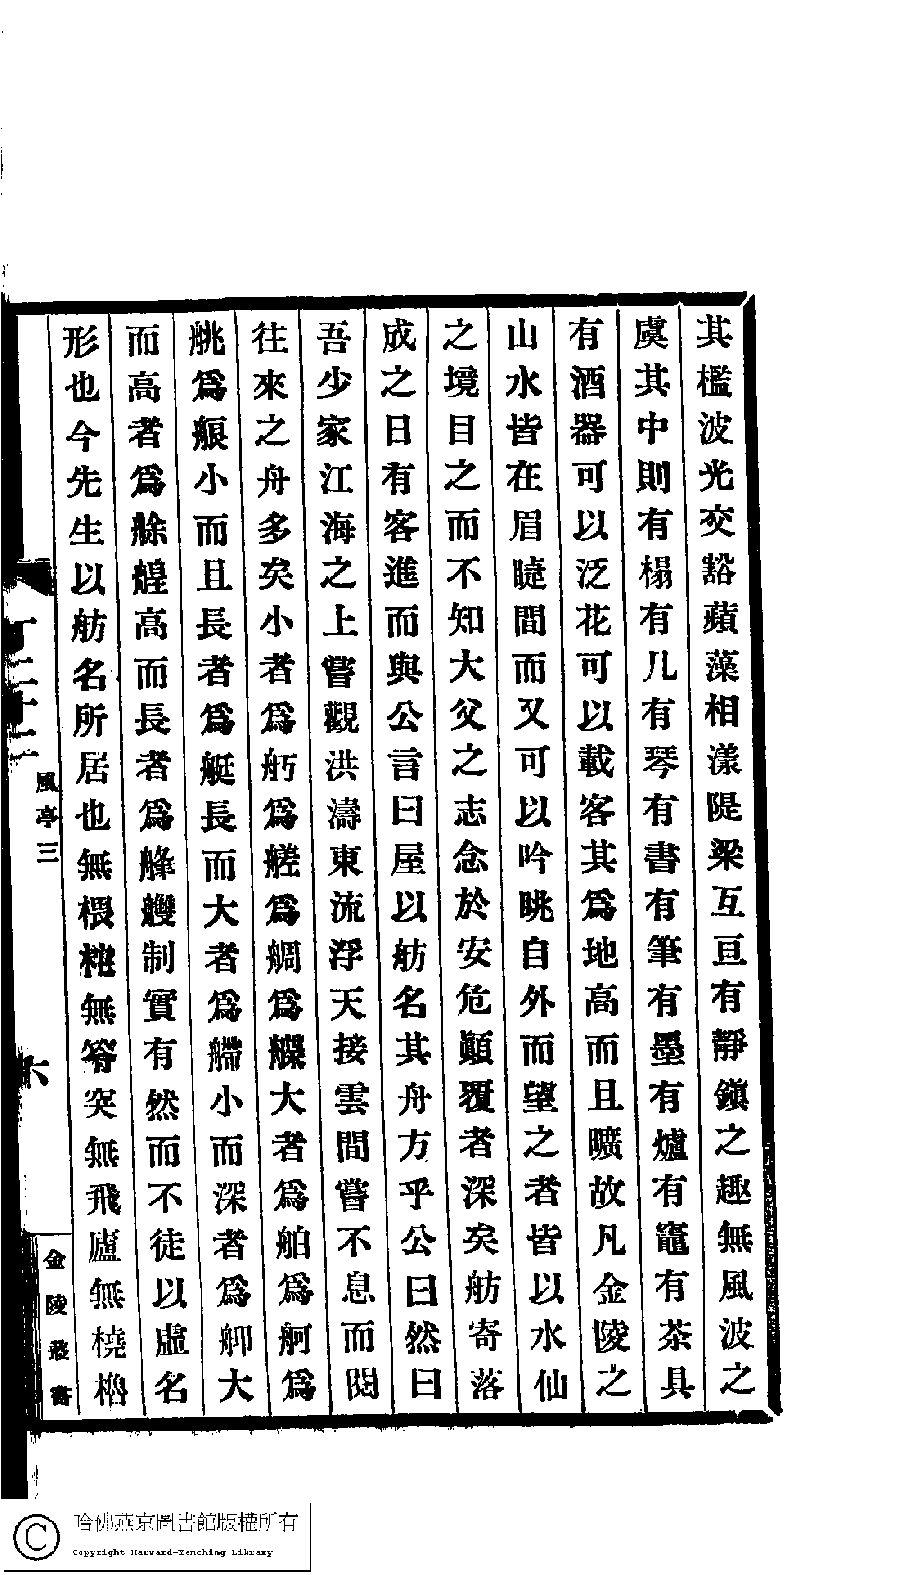 其檻波光交豁蘋藻相漾隄梁互亘有靜鎭之趣無風波之
虞其中則有榻有几有琴有書有筆有墨有爐有竈有茶具
有酒器可以泛花可以載客其爲地高而且曠故凡金陵之
山水皆在眉睫間而又可以吟眺自外而望之者皆以水仙
之境目之而不知大父之志念於安危顚覆者深矣舫寄落
成之日有客進而與公言曰屋以舫名其舟方乎公曰然曰
吾少家江海之上嘗觀洪濤東流浮天接雲間嘗不息而閱
往來之舟多矣小者爲舠爲艖爲艒爲艓大者爲舶爲舸爲
艞爲艆小而且長者爲艇長而大者爲艜小而深者爲䑠大
而高者爲艅艎高而長者爲艂艭制實有然而不徒以虛名
形也今先生以舫名所居也無椳柁無篛突無飛廬無橈櫓
風亭三
六
金陵叢書
哈佛燕京圖書館版權所有
Copyright Harvard-Yenching Library